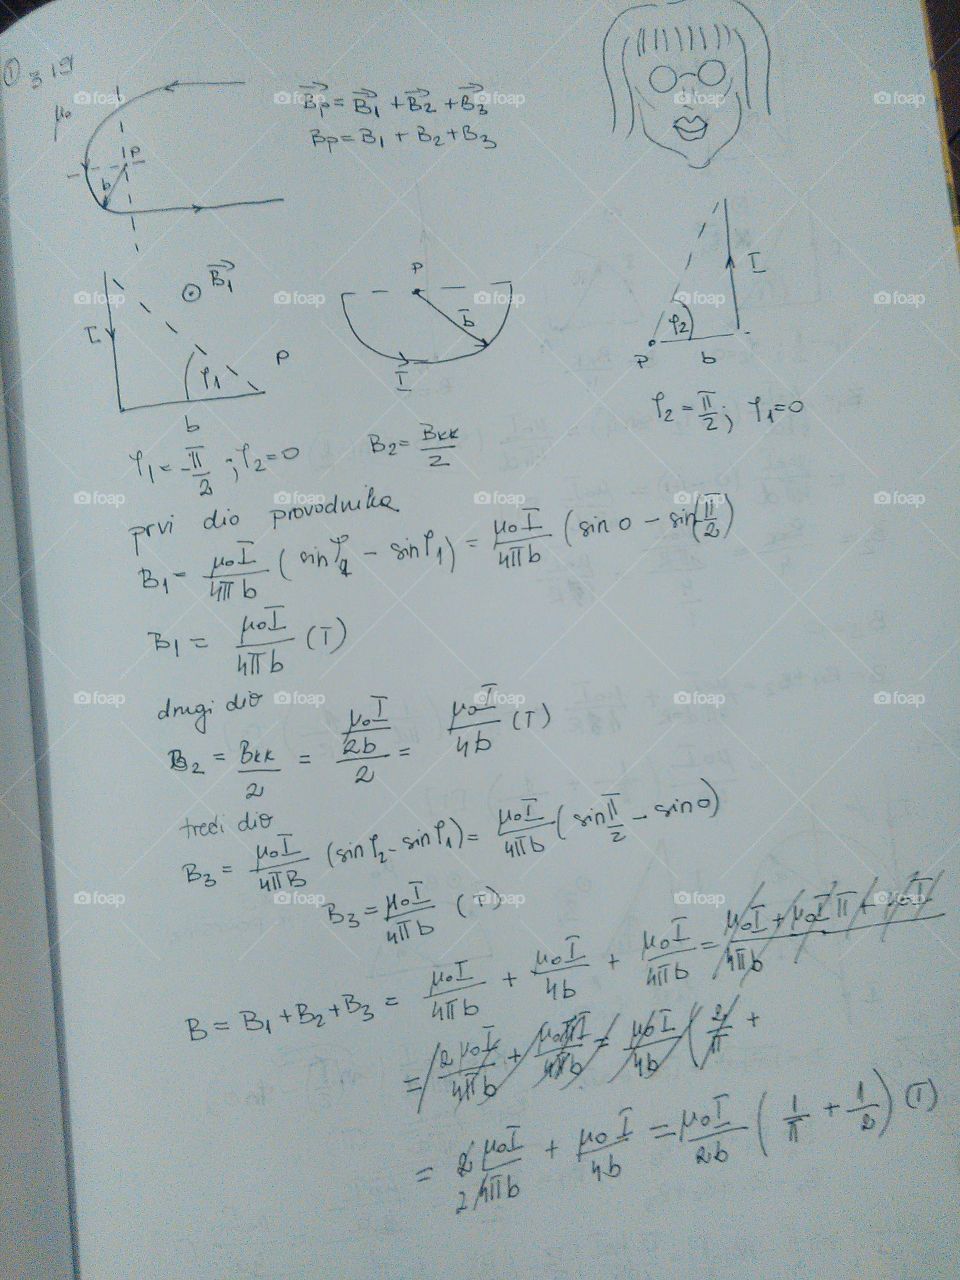 ① 319
μ₀
P
b
B⃗p = B⃗₁ + B⃗₂ + B⃗₃
Bp = B₁ + B₂ + B₃
I
⊙ B⃗₁
φ₁
P
b
P
b
I
I
φ₂
P
b
φ₁ = -π/2 ; φ₂ = 0
B₂ = Bkk/2
φ₂ = π/2 ; φ₁ = 0
prvi dio provodnika
B₁ = μ₀I/4πb (sinφ₂ - sinφ₁) = μ₀I/4πb (sin 0 - sin(π/2)
B₁ = μ₀I/4πb (T)
drugi dio
B₂ = Bkk/2 = μ₀I/2b/2 = μ₀I/4b (T)
treći dio
B₃ = μ₀I/4πB (sinφ₂ - sinφ₁) = μ₀I/4πb (sin π/2 - sin 0)
B₃ = μ₀I/4πb (T)
B = B₁ + B₂ + B₃ = μ₀I/4πb + μ₀I/4b + μ₀I/4πb = μ₀I + μ₀Iπ + μ₀I/4πb
= 2μ₀I/4πb + μ₀πI/4πb = μ₀I/4b (2/π +
= 2μ₀I/2 4πb + μ₀I/4b = μ₀I/2b (1/π + 1/2) (T)
foap